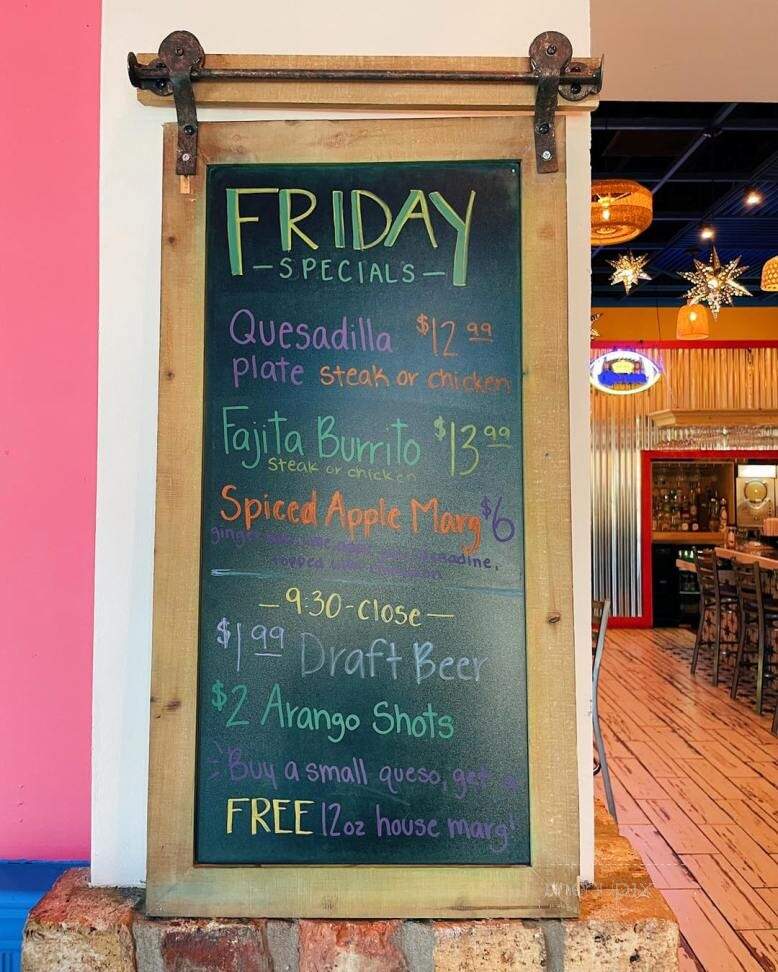 FRIDAY
- SPECIALS -
Quesadilla $12.99
plate steak or chicken
Fajita Burrito $13.99
steak or chicken
Spiced Apple Marg $6
ginger grenadine,
topped with
- 9:30 - Close -
$1.99 Draft Beer
$2 Arango Shots
Buy a small queso, get a
FREE 12oz house marg!